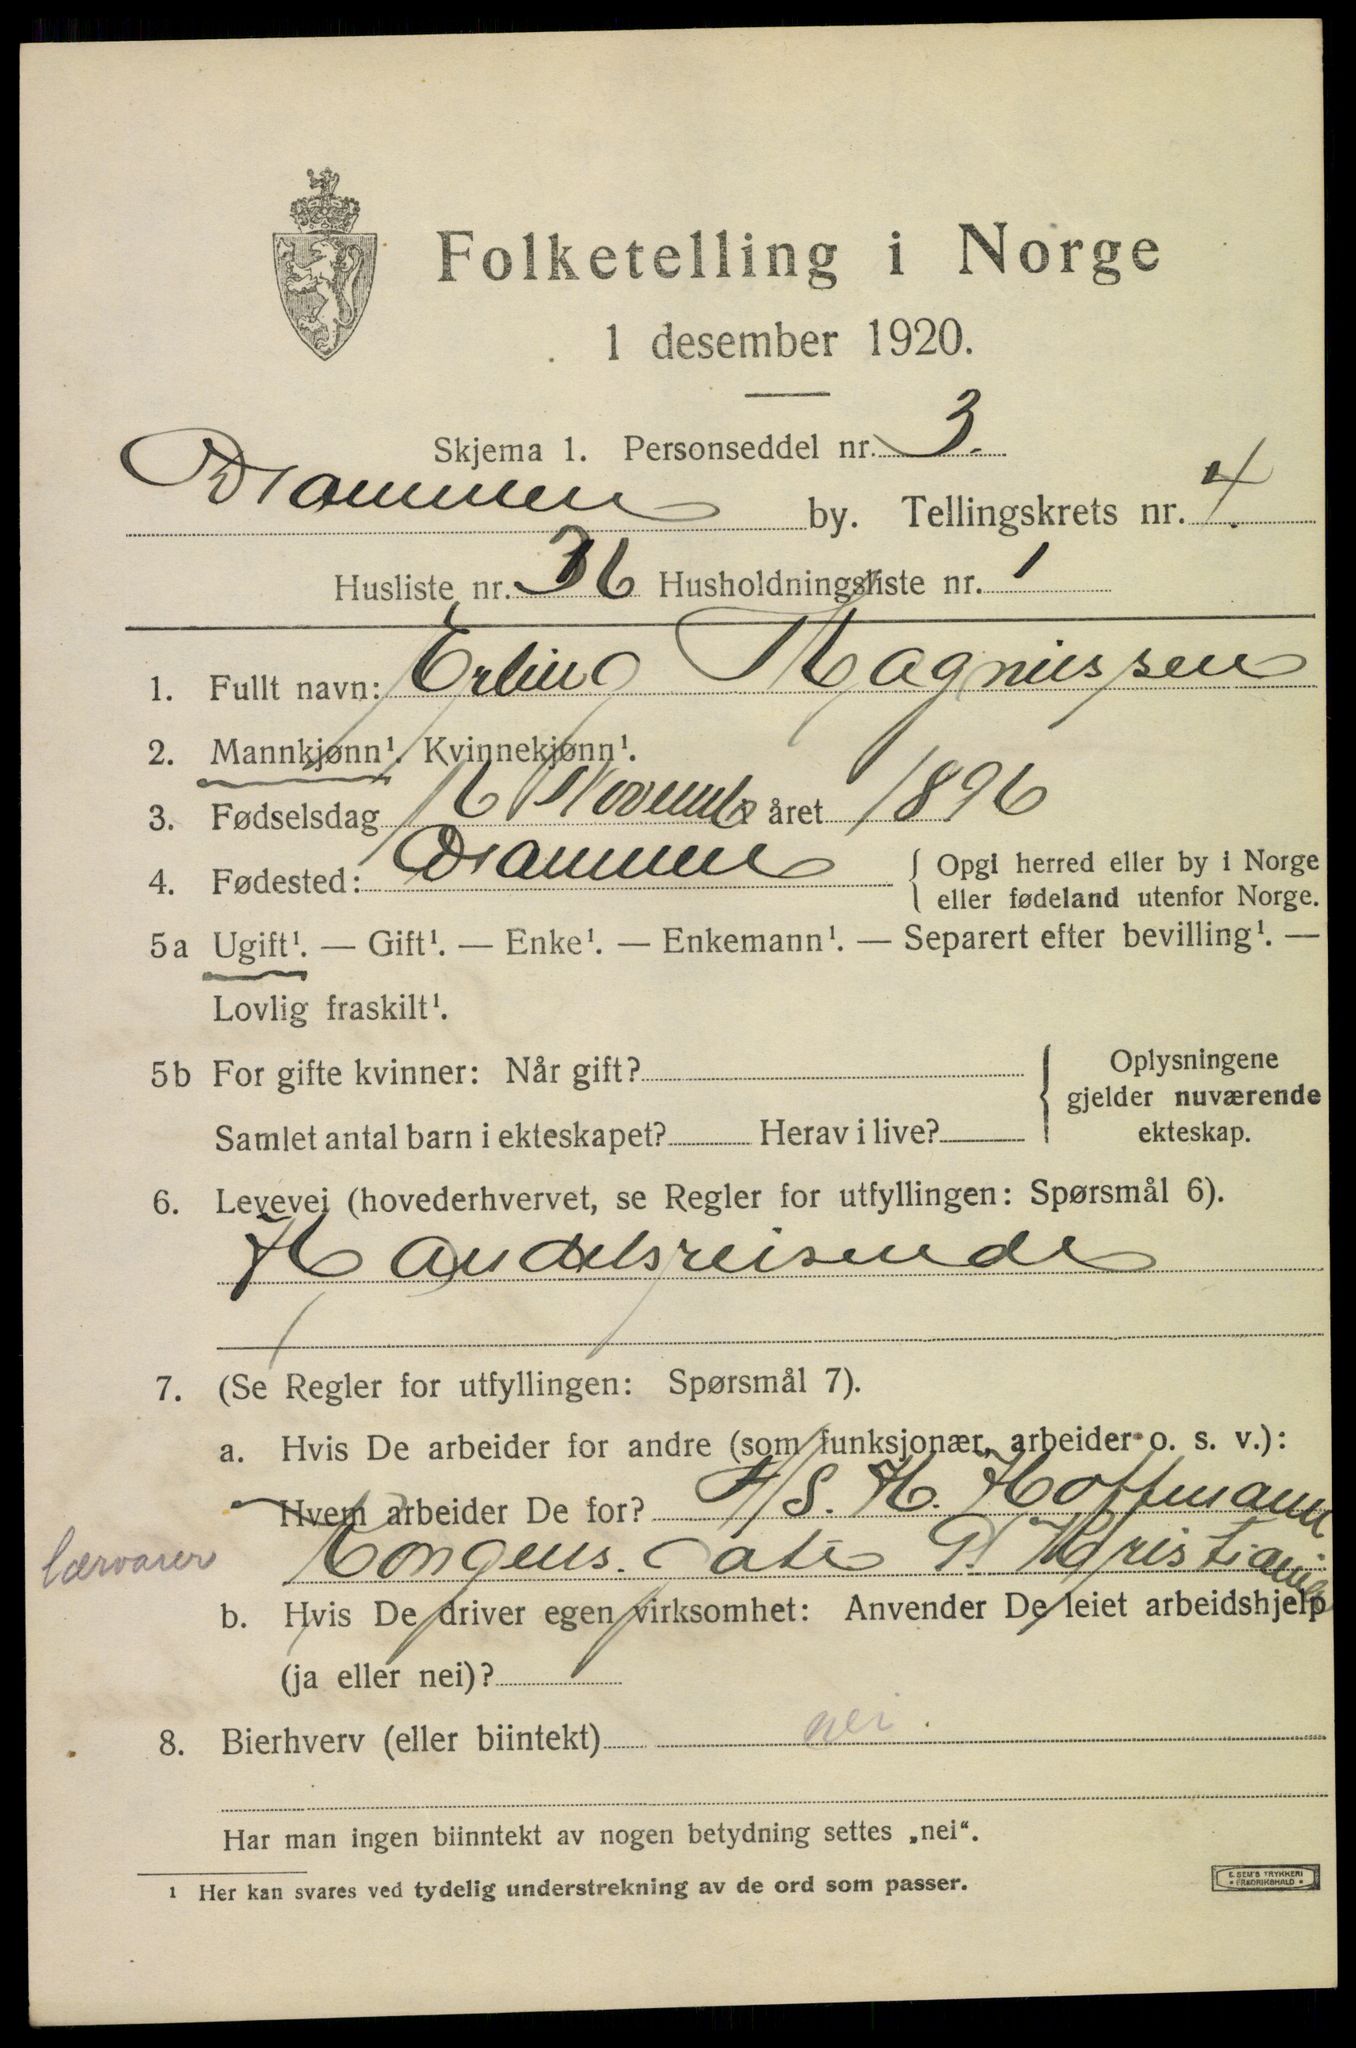 Folketelling i Norge
1 desember 1920.
Skjema 1. Personseddel nr. 3.
Drammen by. Tellingskrets nr. 4.
Husliste nr. 36 Husholdningsliste nr. 1
1. Fullt navn: Erling Magnussen
2. Mannkjønn¹. Kvinnekjønn¹.
3. Fødselsdag 16 November året 1896
4. Fødested: Drammen { Opgi herred eller by i Norge
eller fødeland utenfor Norge.
5a Ugift¹. — Gift¹. — Enke¹. — Enkemann¹. — Separert efter bevilling¹. —
Lovlig fraskilt¹.
5b For gifte kvinner: Når gift? { Oplysningene
gjelder nuværende
Samlet antal barn i ekteskapet? Herav i live? ekteskap.
6. Levevei (hovederhvervet, se Regler for utfyllingen: Spørsmål 6).
Handelsreisende
7. (Se Regler for utfyllingen: Spørsmål 7).
a. Hvis De arbeider for andre (som funksjonær, arbeider o. s. v.):
Hvem arbeider De for? A/S. H. Hoffmann
lærvarer Kongens Gate Kristiania
b. Hvis De driver egen virksomhet: Anvender De leiet arbeidshjelp
(ja eller nei)?
8. Bierhverv (eller biintekt) nei.
Har man ingen biinntekt av nogen betydning settes „nei“.
¹ Her kan svares ved tydelig understrekning av de ord som passer.
E. SEM'S TRYKKERI
• FREDRIKSHALD •